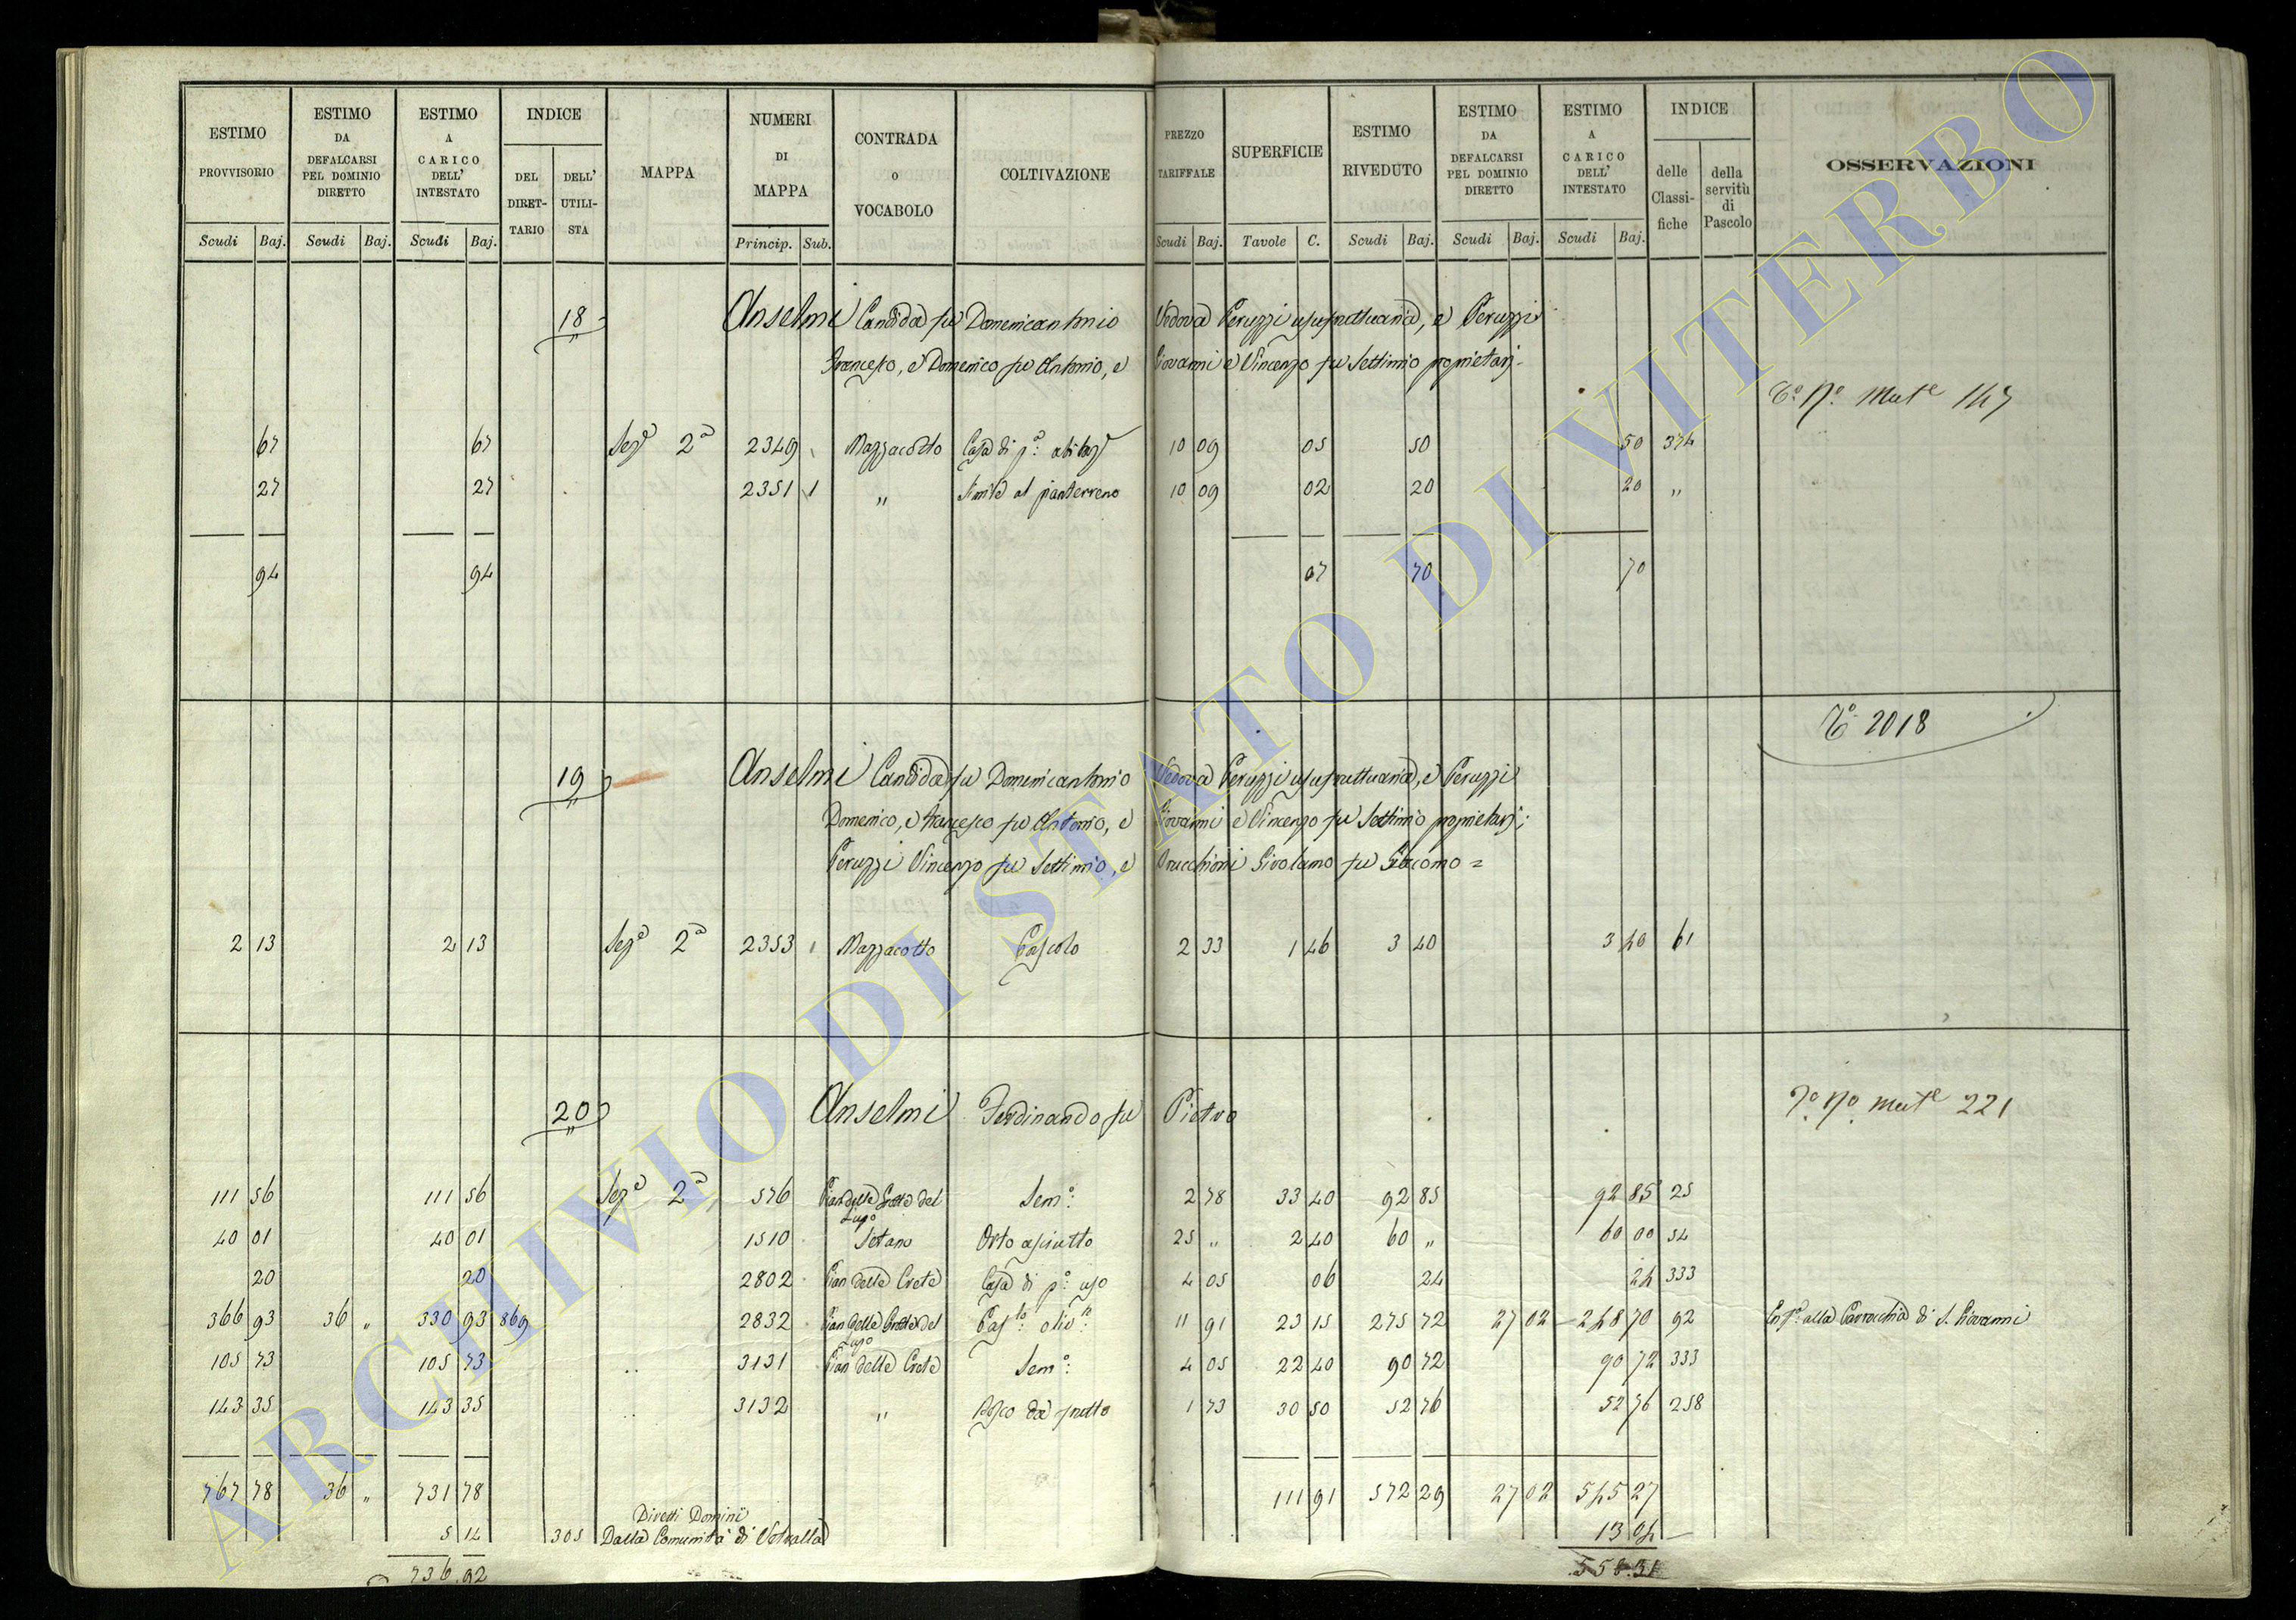 ESTIMO PROVVISORIO | ESTIMO DA DEFALCARSI PEL DOMINIO DIRETTO | ESTIMO A CARICO DELL' INTESTATO | INDICE DEL DIRETTARIO | DELL' UTILISTA | MAPPA | NUMERI DI MAPPA | CONTRADA o VOCABOLO | COLTIVAZIONE | PREZZO TARIFFALE | SUPERFICIE | ESTIMO RIVEDUTO | ESTIMO DA DEFALCARSI PEL DOMINIO DIRETTO | ESTIMO A CARICO DELL' INTESTATO | INDICE delle Classifiche | della servitù di Pascolo | OSSERVAZIONI
Scudi Baj. Scudi Baj. Scudi Baj. Princip. Sub. Scudi Baj. Tavole C. Scudi Baj. Scudi Baj. Scudi Baj.
18 Anselmi Candida fu Domenicantonio Vedova Peruzzi usufruttuaria, e Peruzzi
Francesco, e Domenico fu Antonio, e Giovanni e Vincenzo fu Settimio proprietarj
Mut.e 147
67 67 Sez.e 2a 2349 Mazzacotto Casa di p.a abitaz.e 10 09 05 50 50 374
27 27 2351 1 " Simile al pianterreno 10 09 02 20 20 "
94 94 07 70 70
2018
19 Anselmi Candida fu Domenicantonio Vedova Peruzzi usufruttuaria, e Peruzzi
Domenico, e Francesco fu Antonio, e Giovanni e Vincenzo fu Settimio proprietarj;
Peruzzi Vincenzo fu Settimio, e Brucchioni Girolamo fu Giacomo =
2 13 2 13 Sez.e 2a 2353 Mazzacotto Pascolo 2 33 1 46 3 40 3 40 61
20 Anselmi Ferdinando fu Pietro
Mut.e 221
111 56 111 56 Sez.e 2a 576 Pian delle Grotte del Lupo Sem.o: 2 78 33 40 92 85 92 85 25
40 01 40 01 1510 Setano Orto asciutto 25 " 2 40 60 " 60 00 54
20 20 2802 Pian delle Crete Casa di p.o uso 4 05 06 24 24 333
366 93 36 " 330 93 869 2832 Pian delle Grotte del Lupo Pas.lo oliv.o: 11 91 23 15 275 72 27 02 248 70 92 Enf.a alla Parrocchia di S. Giovanni
105 73 105 73 3131 Pian delle Crete Sem.o: 4 05 22 40 90 72 90 72 333
143 35 143 35 3132 " Bosco da frutto 1 73 30 50 52 76 52 76 258
767 78 36 " 731 78 111 91 572 29 27 02 545 27
Diretti Dominii
5 14 305 Dalla Comunità di Vetralla 13 04
736.92 558.31
ARCHIVIO DI STATO DI VITERBO